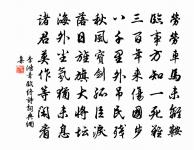 勞勞車馬未離鞍
臨事方知一死難
三百年來傷國步
八千里外吊民殘
秋風寶劍孤臣淚
落日旌旗大將壇
海外塵氛猶未息
諸君莫作等閑看
李鴻章 詩詞典網
集